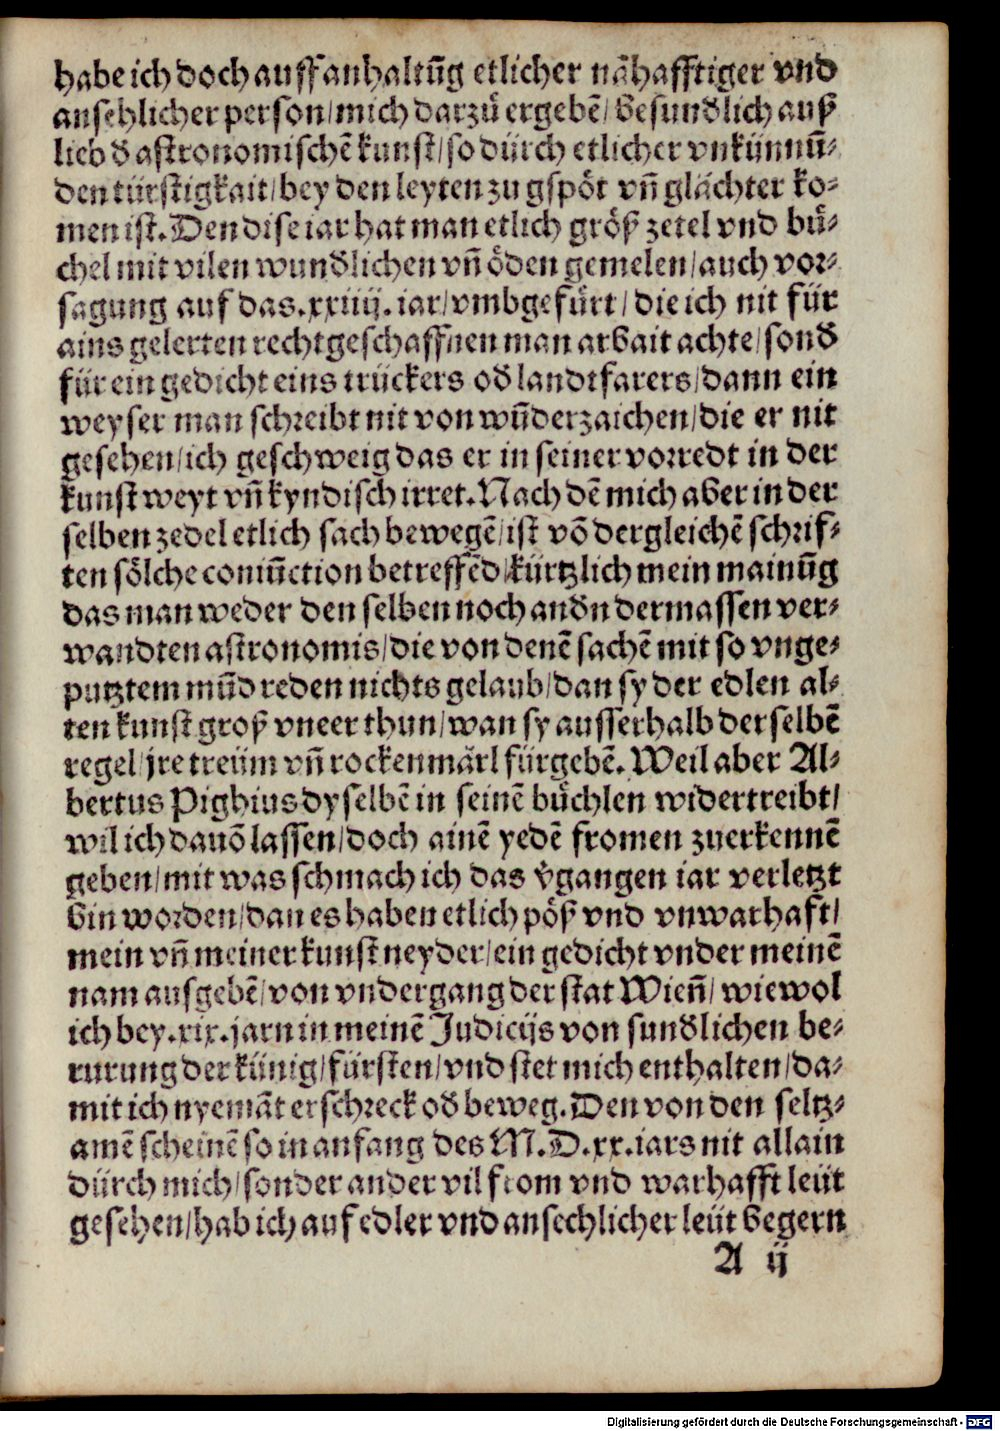 habe ich doch auff anhaltūg etlicher nāhafftiger vnd
ansehlicher person/mich darzů ergebē/besundlich auß
lieb d astronomischē kunst/so dürch etlicher vnkünnū-
den türstigkait/bey den leyten zu gspöt vñ glächter ko-
men ist. Den dise iar hat man etlich größ zetel vnd bů-
chel mit vilen wundlichen vñ öden gemelen/auch vor-
sagung auf das.xxiiij.iar/vmbgefürt/die ich nit für
ains gelerten rechtgeschaffnen man arbait achte/sond
für ein gedicht eins trückers od landtfarers/dann ein
weyser man schreibt nit von wūderzaichen/die er nit
gesehen/ich geschweig das er in seiner vorredt in der
kunst weyt vñ kyndisch irret. Nach dē mich aber in der
selben zedel etlich sach bewegē/ist vō dergleichē schrif-
ten sölche coniūction betreffēd/kürtzlich mein mainūg
das man weder den selben noch andn dermassen ver-
wandten astronomis/die von denē sachē mit so vnge-
putztem mūd reden nichts gelaub/dan sy der edlen al-
ten kunst groß vneer thun/wan sy ausserhalb der selbē
regel/jre treüm vñ rockenmärl fürgebē. Weil aber Al-
bertus Pighius dyselbē in seinē büchlen widertreibt/
wil ich dauō lassen/doch ainē yedē fromen zuerkennē
geben/mit was schmach ich das v̄gangen iar verletzt
bin worden/dan es haben etlich pöß vnd vnwarhaft/
mein vñ meiner kunst neyder/ein gedicht vnder meinē
nam ausgebē/von vndergang der stat Wieñ/wiewol
ich bey.xix.jarn in meinē Judicijs von sundlichen be-
rurung der künig/fürsten/vnd stet mich enthalten/da-
mit ich nyemāt erschreck od beweg. Den von den seltz-
amē scheinē so in anfang des M.D.xx.iars nit allain
dürch mich/sonder ander vil from vnd warhafft leüt
gesehen/hab ich auf edler vnd ansechlicher leüt begern
A ij
Digitalisierung gefördert durch die Deutsche Forschungsgemeinschaft - DFG